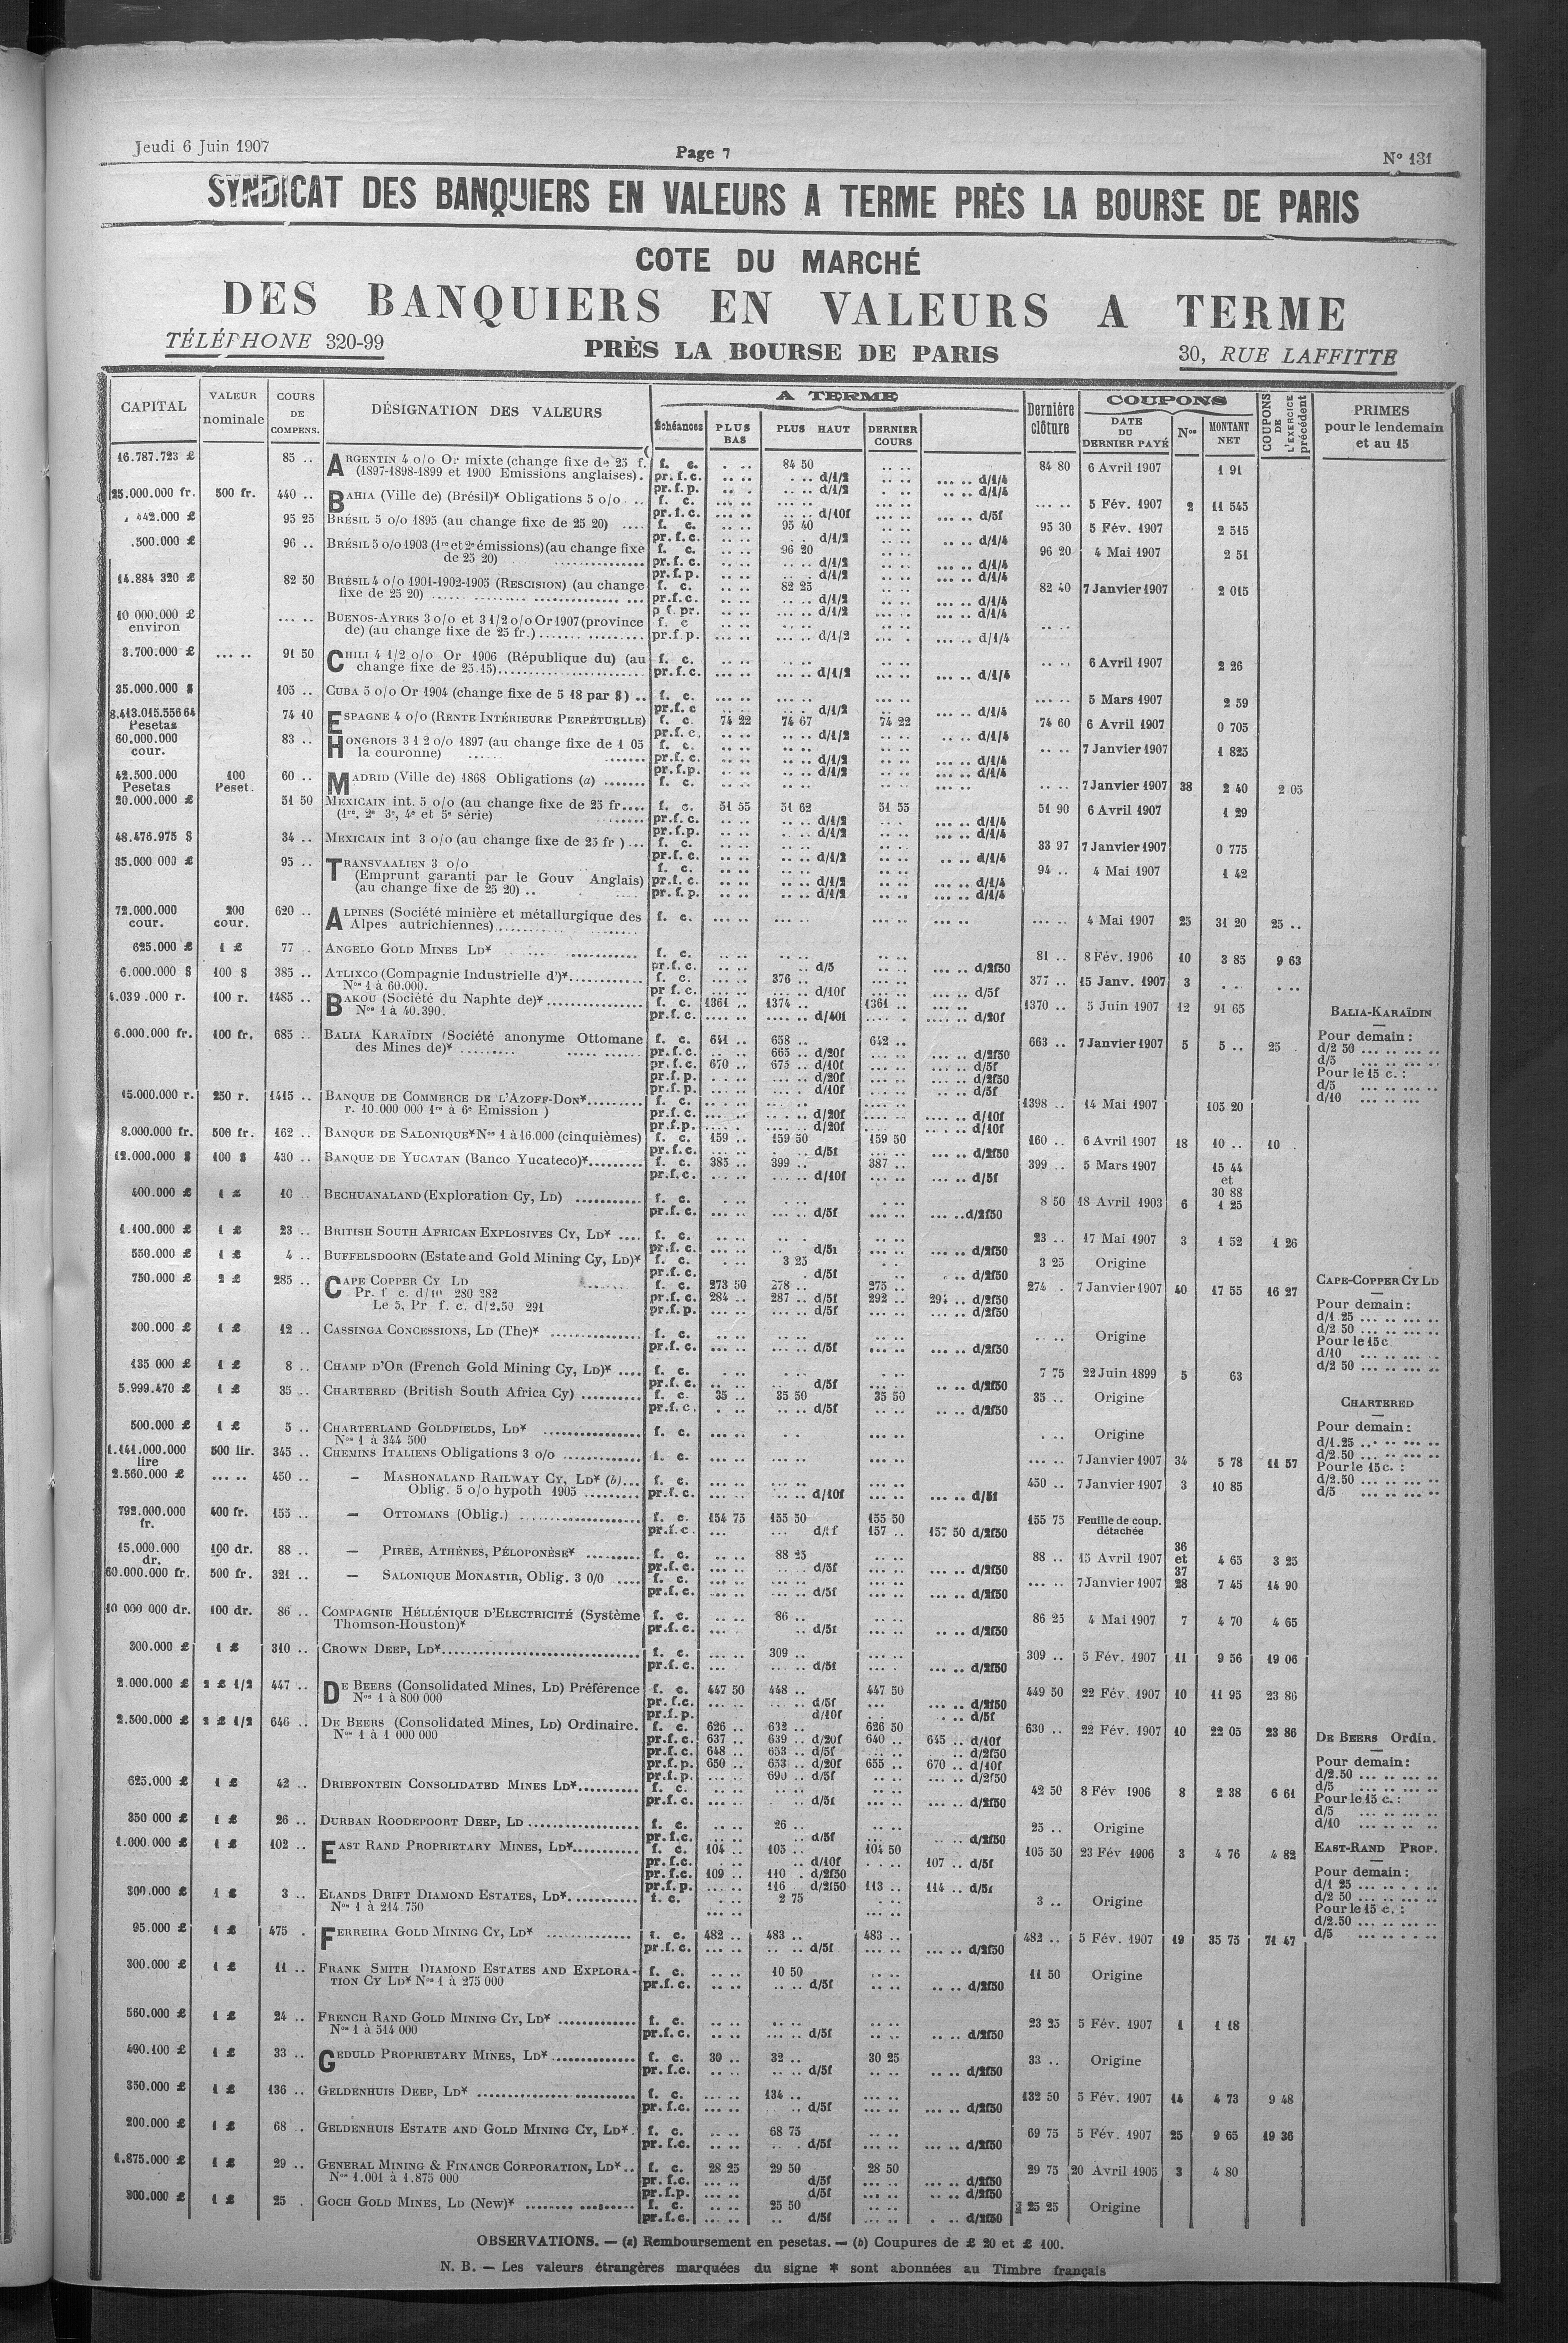 Jeudi 6 Juin 1907
Page 7
N° 131
SYNDICAT DES BANQUIERS EN VALEURS A TERME PRÈS LA BOURSE DE PARIS
COTE DU MARCHÉ
DES BANQUIERS EN VALEURS A TERME
TÉLÉPHONE 320-99
PRÈS LA BOURSE DE PARIS
30, RUE LAFFITTE
CAPITAL
VALEUR nominale
COURS DE COMPENS.
DÉSIGNATION DES VALEURS
A TERME
Échéances
PLUS BAS
PLUS HAUT
DERNIER COURS
Dernière clôture
COUPONS
DATE DU DERNIER PAYÉ
Nos
MONTANT NET
COUPONS DE L'EXERCICE précédent
PRIMES pour le lendemain et au 15
16.787.723 £ 85 .. ARGENTIN 4 o/o Or mixte (change fixe de 25 f. f. c. 84 50 84 80 6 Avril 1907 1 91
(1897-1898-1899 et 1900 Emissions anglaises). pr.f.c. d/1/2 d/1/4
pr.f.p. d/1/2 d/1/4
25.000.000 fr. 500 fr. 440 .. BAHIA (Ville de) (Brésil)* Obligations 5 o/o .. f. c. 5 Fév. 1907 2 11 545
pr.f.c. d/10f d/5f
442.000 £ 95 25 BRÉSIL 5 o/o 1895 (au change fixe de 25 20) .... f. c. 95 40 95 30 5 Fév. 1907 2 515
pr.f.c. d/1/2 d/1/4
.500.000 £ 96 .. BRÉSIL 5 o/o 1903 (1re et 2e émissions) (au change fixe f. c. 96 20 96 20 4 Mai 1907 2 51
de 25 20) pr.f.c. d/1/2 d/1/4
pr.f.p. d/1/2 d/1/4
14.884 320 £ 82 50 BRÉSIL 4 o/o 1901-1902-1905 (RESCISION) (au change f. c. 82 25 82 40 7 Janvier 1907 2 015
fixe de 25 20) pr.f.c. d/1/2 d/1/4
p f. pr. d/1/2 d/1/4
10 000.000 £ environ BUENOS-AYRES 3 o/o et 3 1/2 o/o Or 1907 (province f. c
de) (au change fixe de 25 fr.) pr.f.p. d/1/2 d/1/4
3.700.000 £ 91 50 CHILI 4 1/2 o/o Or 1906 (République du) (au f. c. 6 Avril 1907 2 26
change fixe de 25.15) pr.f.c. d/1/2 d/1/4
35.000.000 $ 105 .. CUBA 5 o/o Or 1904 (change fixe de 5 18 par $) .. f. c. 5 Mars 1907 2 59
pr.f.c d/1/2 d/1/4
8.413.015.556 64 Pesetas 74 10 ESPAGNE 4 o/o (RENTE INTÉRIEURE PERPÉTUELLE) f. c. 74 22 74 67 74 22 74 60 6 Avril 1907 0 705
pr.f.c. d/1/2 d/1/4
60.000.000 cour. 83 .. HONGROIS 3 1 2 o/o 1897 (au change fixe de 1 05 f. c. 7 Janvier 1907 1 825
la couronne) pr.f.c. d/1/2 d/1/4
pr.f.p. d/1/2 d/1/4
42.500.000 Pesetas 100 Peset. 60 .. MADRID (Ville de) 1868 Obligations (a) f. c. 7 Janvier 1907 38 2 40 2 05
20.000.000 £ 51 50 MEXICAIN int. 5 o/o (au change fixe de 25 fr.... f. c. 51 55 51 62 51 55 51 90 6 Avril 1907 1 29
(1re, 2e 3e, 4e et 5e série) pr.f.c. d/1/2 d/1/4
pr.f.p. d/1/2 d/1/4
48.476.975 $ 34 .. MEXICAIN int 3 o/o (au change fixe de 25 fr ) ... f. c. 33 97 7 Janvier 1907 0 775
pr.f.c. d/1/2 d/1/4
35.000 000 £ 95 .. TRANSVAALIEN 3 o/o f. c. 94 .. 4 Mai 1907 1 42
(Emprunt garanti par le Gouv Anglais) pr.f.c. d/1/2 d/1/4
(au change fixe de 25 20) .. pr.f.p. d/1/2 d/1/4
72.000.000 cour. 200 cour. 620 .. ALPINES (Société minière et métallurgique des f. c. 4 Mai 1907 25 31 20 25 ..
Alpes autrichiennes)
625.000 £ 1 £ 77 .. ANGELO GOLD MINES LD* f. c. 81 .. 8 Fév. 1906 10 3 85 9 63
pr.f.c. d/5 d/2f50
6.000.000 $ 100 $ 385 .. ATLIXCO (Compagnie Industrielle d')* f. c. 376 .. 377 .. 15 Janv. 1907 3
Nos 1 à 60.000. pr f.c. d/10f d/5f
4.039.000 r. 100 r. 1485 .. BAKOU (Société du Naphte de)* f. c. 1361 .. 1374 .. 1361 .. 1370 .. 5 Juin 1907 12 91 65
Nos 1 à 40.390. pr.f.c. d/40f d/20f
6.000.000 fr. 100 fr. 685 .. BALIA KARAÏDIN (Société anonyme Ottomane f. c. 641 .. 658 .. 642 .. 663 .. 7 Janvier 1907 5 5 .. 25
des Mines de)* pr.f.c. 665 .. d/20f d/2f50
pr.f.c. 670 .. 675 .. d/10f d/5f
pr.f.p. d/20f d/2f50
pr.f.p. d/10f d/5f
15.000.000 r. 250 r. 1415 .. BANQUE DE COMMERCE DE L'AZOFF-DON* f. c. 1398 .. 14 Mai 1907 105 20
r. 10.000 000 1re à 6e Emission ) pr.f.c. d/20f d/10f
pr.f.p. d/20f d/10f
8.000.000 fr. 500 fr. 162 .. BANQUE DE SALONIQUE* Nos 1 à 16.000 (cinquièmes) f. c. 159 .. 159 50 159 50 160 .. 6 Avril 1907 18 10 .. 10
pr.f.c. d/5f d/2f50
12.000.000 $ 100 $ 430 .. BANQUE DE YUCATAN (Banco Yucateco)* f. c. 385 .. 399 .. 387 .. 399 .. 5 Mars 1907 15 44 et 30 88
pr.f.c. d/10f d/5f
400.000 £ 1 £ 10 .. BECHUANALAND (Exploration Cy, LD) f. c. 8 50 18 Avril 1903 6 1 25
pr.f.c. d/5f d/2f50
1.100.000 £ 1 £ 23 .. BRITISH SOUTH AFRICAN EXPLOSIVES CY, LD* f. c. 23 .. 17 Mai 1907 3 1 52 1 26
pr.f.c. d/5f d/2f50
550.000 £ 1 £ 4 .. BUFFELSDOORN (Estate and Gold Mining Cy, LD)* f. c. 3 25 3 25 Origine
pr.f.c. d/5f d/2f50
750.000 £ 2 £ 285 .. CAPE COPPER CY LD f. c. 273 50 278 .. 275 .. 274 . 7 Janvier 1907 40 17 55 16 27
Pr. f c. d/10 280 282 pr.f.c. 284 .. 287 .. d/5f 292 .. 294 .. d/2f50
Le 5, Pr f. c. d/2.50 291 pr.f.p. d/5f d/2f50
200.000 £ 1 £ 12 .. CASSINGA CONCESSIONS, LD (The)* f. c. Origine
pr.f.c. d/5f d/2f50
135 000 £ 1 £ 8 .. CHAMP D'OR (French Gold Mining Cy, LD)* f. c. 7 75 22 Juin 1899 5 63
pr.f.c. d/5f d/2f50
5.999.470 £ 1 £ 35 .. CHARTERED (British South Africa Cy) f. c. 35 .. 35 50 35 50 35 .. Origine
pr.f.c. d/5f d/2f50
500.000 £ 1 £ 5 .. CHARTERLAND GOLDFIELDS, LD* f. c. Origine
Nos 1 à 344 500
1.141.000.000 lire 500 lir. 345 .. CHEMINS ITALIENS Obligations 3 o/o f. c. 7 Janvier 1907 34 5 78 11 57
2.560.000 £ 450 .. — MASHONALAND RAILWAY CY, LD* (b) f. c. 450 .. 7 Janvier 1907 3 10 85
Oblig. 5 o/o hypoth 1905 pr.f.c. d/10f d/5f
792.000.000 fr. 400 fr. 155 .. — OTTOMANS (Oblig.) f. c. 154 75 155 50 155 50 155 75 Feuille de coup. détachée
pr.f.c. 157 .. 157 50 d/2f50
15.000.000 dr. 100 dr. 88 .. — PIRÉE, ATHÈNES, PÉLOPONÈSE* f. c. 88 25 88 .. 15 Avril 1907 36 et 37 4 65 3 25
pr.f.c. d/5f d/2f50
60.000.000 fr. 500 fr. 321 .. — SALONIQUE MONASTIR, Oblig. 3 0/0 f. c. 7 Janvier 1907 28 7 45 14 90
pr.f.c. d/5f d/2f50
10 000 000 dr. 100 dr. 86 .. COMPAGNIE HÉLLÉNIQUE D'ELECTRICITÉ (Système f. c. 86 .. 86 25 4 Mai 1907 7 4 70 4 65
Thomson-Houston)* pr.f.c. d/5f d/2f50
300.000 £ 1 £ 310 .. CROWN DEEP, LD* f. c. 309 .. 309 .. 5 Fév. 1907 11 9 56 19 06
pr.f.c. d/5f d/2f50
2.000.000 £ 2 £ 1/2 447 .. DE BEERS (Consolidated Mines, LD) Préférence f. c. 447 50 448 .. 447 50 449 50 22 Fév. 1907 10 11 95 23 86
Nos 1 à 800 000 pr.f.c. d/5f d/2f50
pr.f.p. d/10f d/5f
2.500.000 £ 2 £ 1/2 646 .. DE BEERS (Consolidated Mines, LD) Ordinaire. f. c. 626 .. 632 .. 626 50 630 .. 22 Fév. 1907 10 22 05 23 86
Nos 1 à 1 000 000 pr.f.c. 637 .. 639 .. d/20f 640 .. 645 .. d/10f
pr.f.c. 648 .. 653 .. d/5f d/2f50
pr.f.p. 650 .. 653 .. d/20f 655 .. 670 .. d/10f
pr.f.p. 690 .. d/5f d/2f50
625.000 £ 1 £ 42 .. DRIEFONTEIN CONSOLIDATED MINES LD* f. c. 42 50 8 Fév 1906 8 2 38 6 61
pr.f.c. d/5f d/2f50
350 000 £ 1 £ 26 .. DURBAN ROODEPOORT DEEP, LD f. c. 26 .. 25 .. Origine
pr.f.c. d/5f d/2f50
1.000.000 £ 1 £ 102 .. EAST RAND PROPRIETARY MINES, LD* f. c. 104 .. 105 .. 104 50 105 50 23 Fév 1906 3 4 76 4 82
pr.f.c. d/10f 107 .. d/5f
pr.f.c. 109 .. 110 . d/2f50
pr.f.p. 116 d/2f50 113 .. 114 .. d/5f
300.000 £ 1 £ 3 .. ELANDS DRIFT DIAMOND ESTATES, LD* f. c. 2 75 3 .. Origine
Nos 1 à 214.750
95.000 £ 1 £ 475 . FERREIRA GOLD MINING CY, LD* f. c. 482 .. 483 .. 483 .. 482 .. 5 Fév. 1907 19 35 75 71 47
pr.f.c. d/5f d/2f50
300.000 £ 1 £ 11 .. FRANK SMITH DIAMOND ESTATES AND EXPLORA- f. c. 10 50 11 50 Origine
TION CY LD* Nos 1 à 275 000 pr.f.c. d/5f d/2f50
560.000 £ 1 £ 24 .. FRENCH RAND GOLD MINING CY, LD* f. c. 23 25 5 Fév. 1907 1 1 18
Nos 1 à 514 000 pr.f.c. d/5f d/2f50
490.100 £ 1 £ 33 .. GEDULD PROPRIETARY MINES, LD* f. c. 30 .. 32 .. 30 25 33 .. Origine
pr.f.c. d/5f d/2f50
350.000 £ 1 £ 136 .. GELDENHUIS DEEP, LD* f. c. 134 .. 132 50 5 Fév. 1907 14 4 73 9 48
pr.f.c. d/5f d/2f50
200.000 £ 1 £ 68 .. GELDENHUIS ESTATE AND GOLD MINING CY, LD* f. c. 68 75 69 75 5 Fév. 1907 25 9 65 19 36
pr.f.c. d/5f d/2f50
1.875.000 £ 1 £ 29 .. GENERAL MINING & FINANCE CORPORATION, LD* f. c. 28 25 29 50 28 50 29 75 20 Avril 1905 3 4 80
Nos 1.001 à 1.875 000 pr.f.c. d/5f d/2f50
pr.f.p. d/5f d/2f50
300.000 £ 1 £ 25 . GOCH GOLD MINES, LD (New)* f. c. 25 50 25 25 Origine
pr.f.c. d/5f d/2f50
BALIA-KARAÏDIN
Pour demain :
d/2 50
d/5
Pour le 15 c. :
d/5
d/10
CAPE-COPPER CY LD
Pour demain :
d/1 25
d/2 50
Pour le 15 c.
d/10
d/2 50
CHARTERED
Pour demain :
d/1.25
d/2.50
Pour le 15 c. :
d/2.50
d/5
DE BEERS Ordin.
Pour demain :
d/2.50
d/5
Pour le 15 c. :
d/5
d/10
EAST-RAND PROP.
Pour demain :
d/1 25
d/2 50
Pour le 15 c. :
d/2.50
d/5
OBSERVATIONS. — (a) Remboursement en pesetas. — (b) Coupures de £ 20 et £ 100.
N. B. — Les valeurs étrangères marquées du signe * sont abonnées au Timbre français